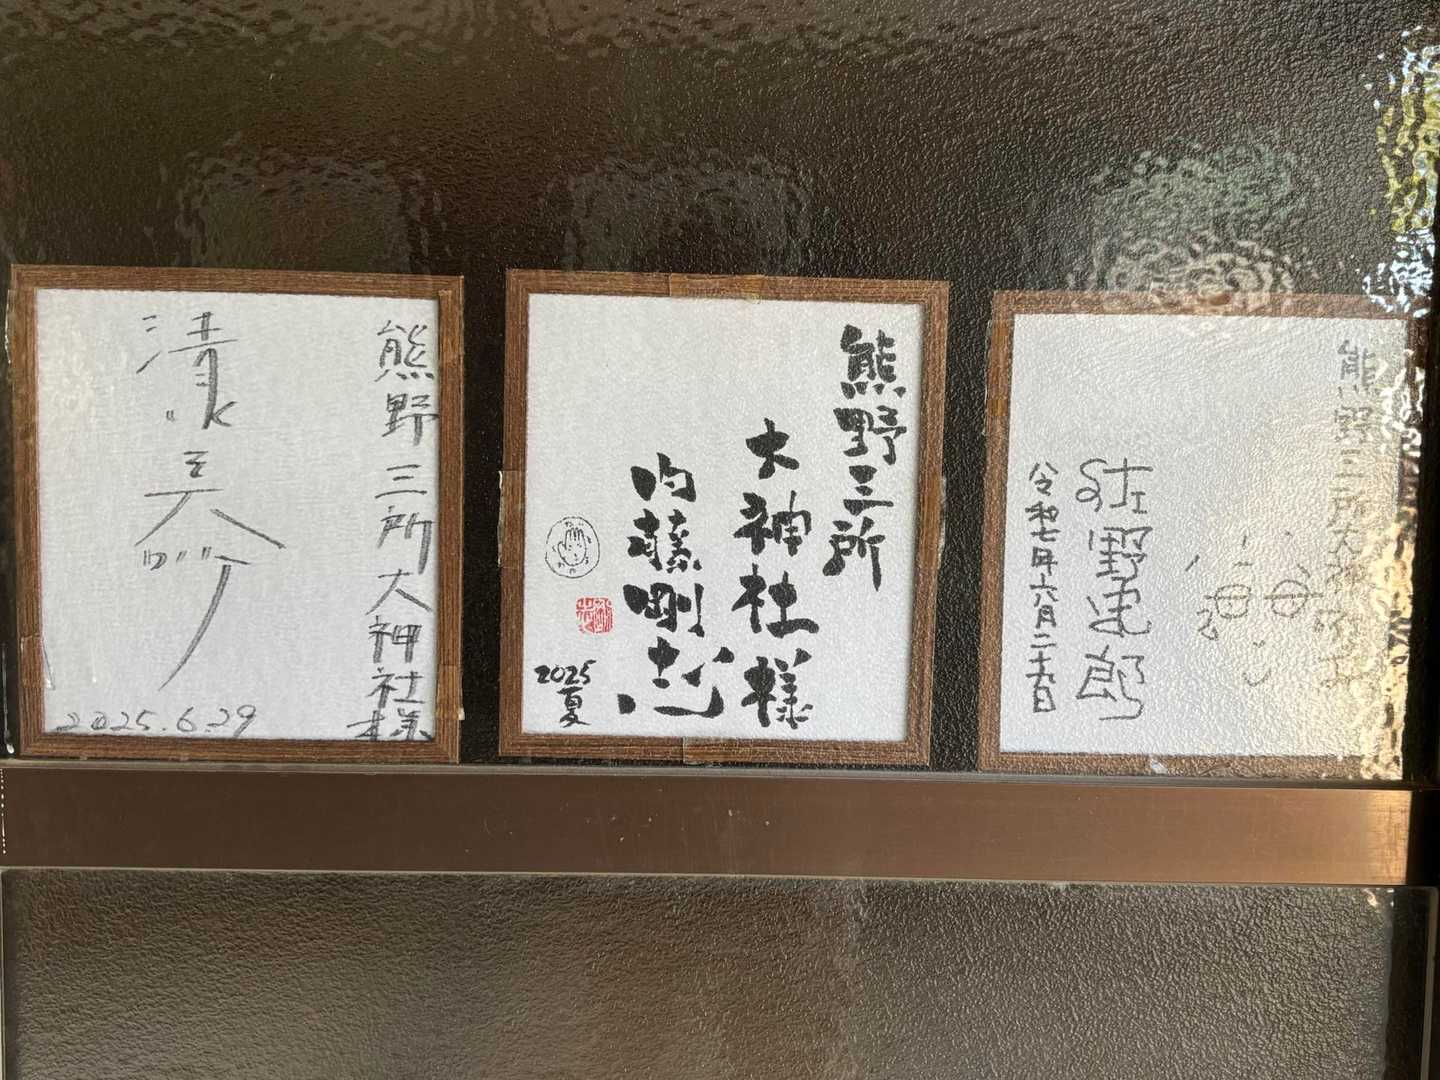 熊野三所大神社様
清水美砂
2025.6.29
熊野三所
大神社様
内藤剛志
2025
夏
熊野三所大神社様
佐野史郎
令和七年六月二十九日